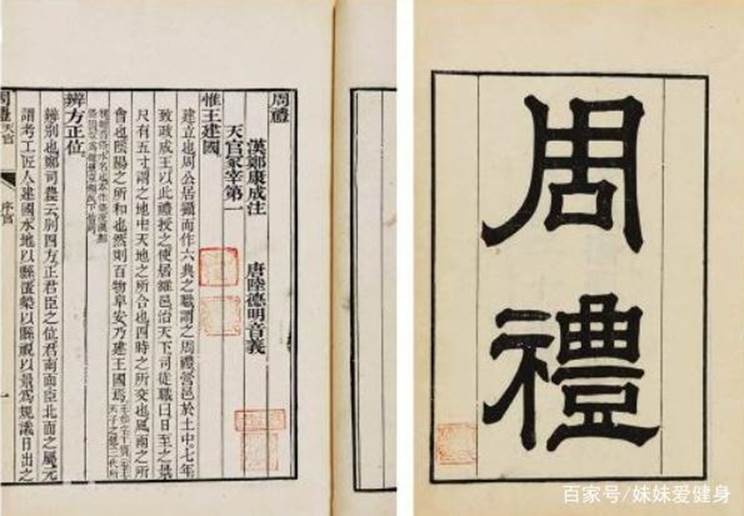 周禮
漢鄭康成注 唐陸德明音義
天官冢宰第一
惟王建國
建立也周公居攝而作六典之職謂之周禮營邑於土中七年
致政成王以此禮授之使居雒邑治天下司徒職曰日至之景
尺有五寸謂之地中天地之所合也四時之所交也風雨之所
會也陰陽之所和也然則百物阜安乃建王國焉
辨方正位
辨別也鄭司農云別四方正君臣之位君南面臣北面之屬元
謂考工匠人建國水地以縣置槷以縣視以景為規識日出之
周禮 天官 序官 一
周禮
百家号/妹妹爱健身